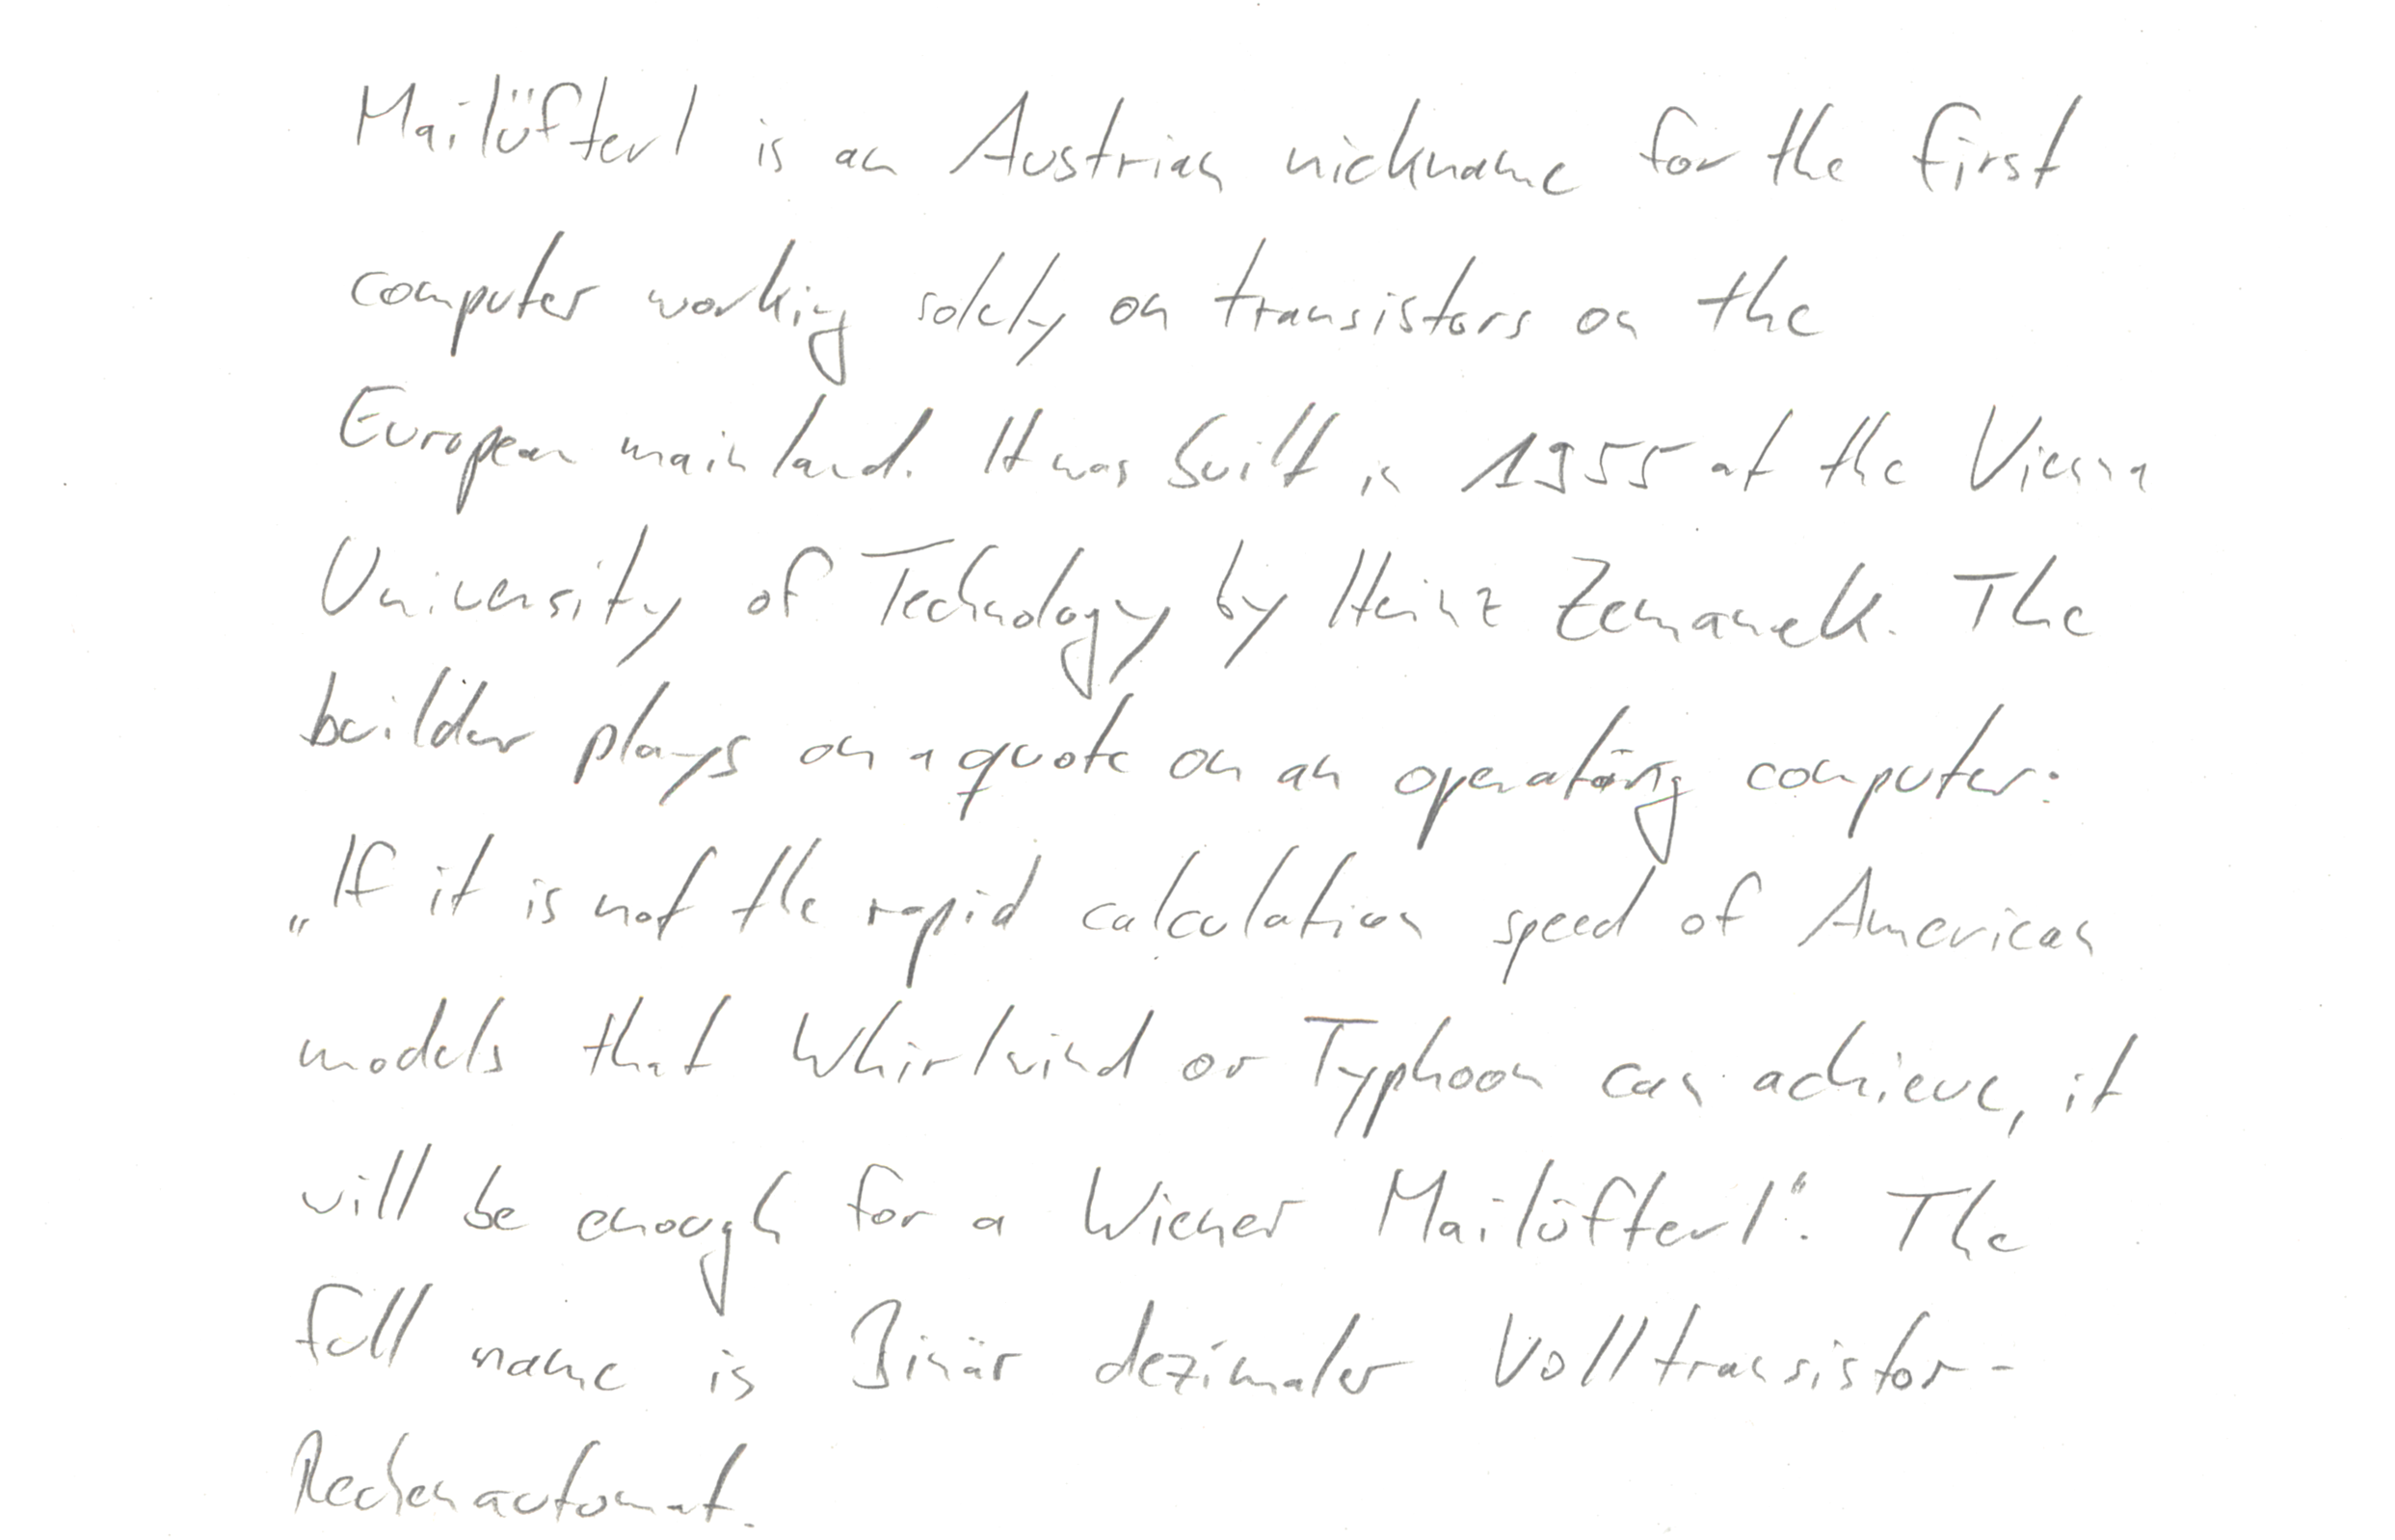 Mailüfterl is an Austrian nickname for the first
computer working solely on transistors on the
European mainland. It was built in 1955 at the Vienna
University of Technology by Heinz Zemanek. The
builder plays on a quote on an operating computer:
„If it is not the rapid calculation speed of American
models that Whirlwind or Typhoon can achieve, it
will be enough for a Wiener Mailüfterl“. The
full name is Binär dezimaler Volltransistor-
Rechenautomat.